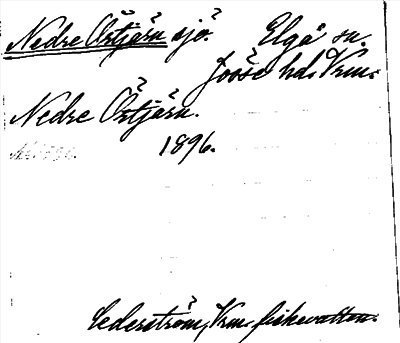 Nedre Östjärn sjö. Elgå sn.
Jösse hd. Vrm.
Nedre Östjärn.
1896.
Cederström, Vrm. fiskevatten.